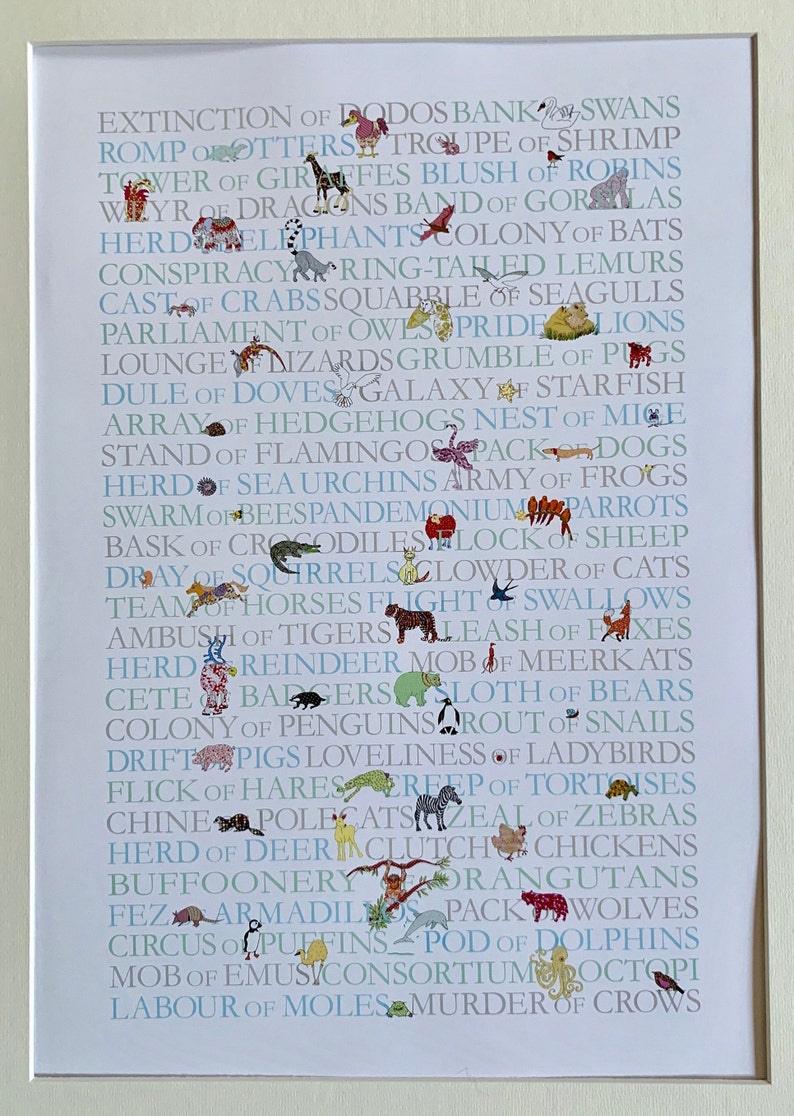 EXTINCTION OF DODOS BANK SWANS
ROMP OTTERS TROUPE OF SHRIMP
TOWER OF GIRAFFES BLUSH OF ROBINS
WEYR OF DRAGONS BAND OF GORILLAS
HERD ELEPHANTS COLONY OF BATS
CONSPIRACY RING-TAILED LEMURS
CAST OF CRABS SQUABBLE OF SEAGULLS
PARLIAMENT OF OWLS PRIDE LIONS
LOUNGE OF LIZARDS GRUMBLE OF PUGS
DULE OF DOVES GALAXY OF STARFISH
ARRAY OF HEDGEHOGS NEST OF MICE
STAND OF FLAMINGOS PACK OF DOGS
HERD OF SEA URCHINS ARMY OF FROGS
SWARM OF BEES PANDEMONIUM PARROTS
BASK OF CROCODILES FLOCK OF SHEEP
DRAY OF SQUIRRELS CLOWDER OF CATS
TEAM OF HORSES FLIGHT OF SWALLOWS
AMBUSH OF TIGERS LEASH OF FOXES
HERD REINDEER MOB OF MEERKATS
CETE OF BADGERS SLOTH OF BEARS
COLONY OF PENGUINS ROUT OF SNAILS
DRIFT OF PIGS LOVELINESS OF LADYBIRDS
FLICK OF HARES CREEP OF TORTOISES
CHINE POLECATS ZEAL OF ZEBRAS
HERD OF DEER CLUTCH CHICKENS
BUFFOONERY OF ORANGUTANS
FEZ ARMADILLOS PACK WOLVES
CIRCUS OF PUFFINS POD OF DOLPHINS
MOB OF EMUS CONSORTIUM OCTOPI
LABOUR OF MOLES MURDER OF CROWS